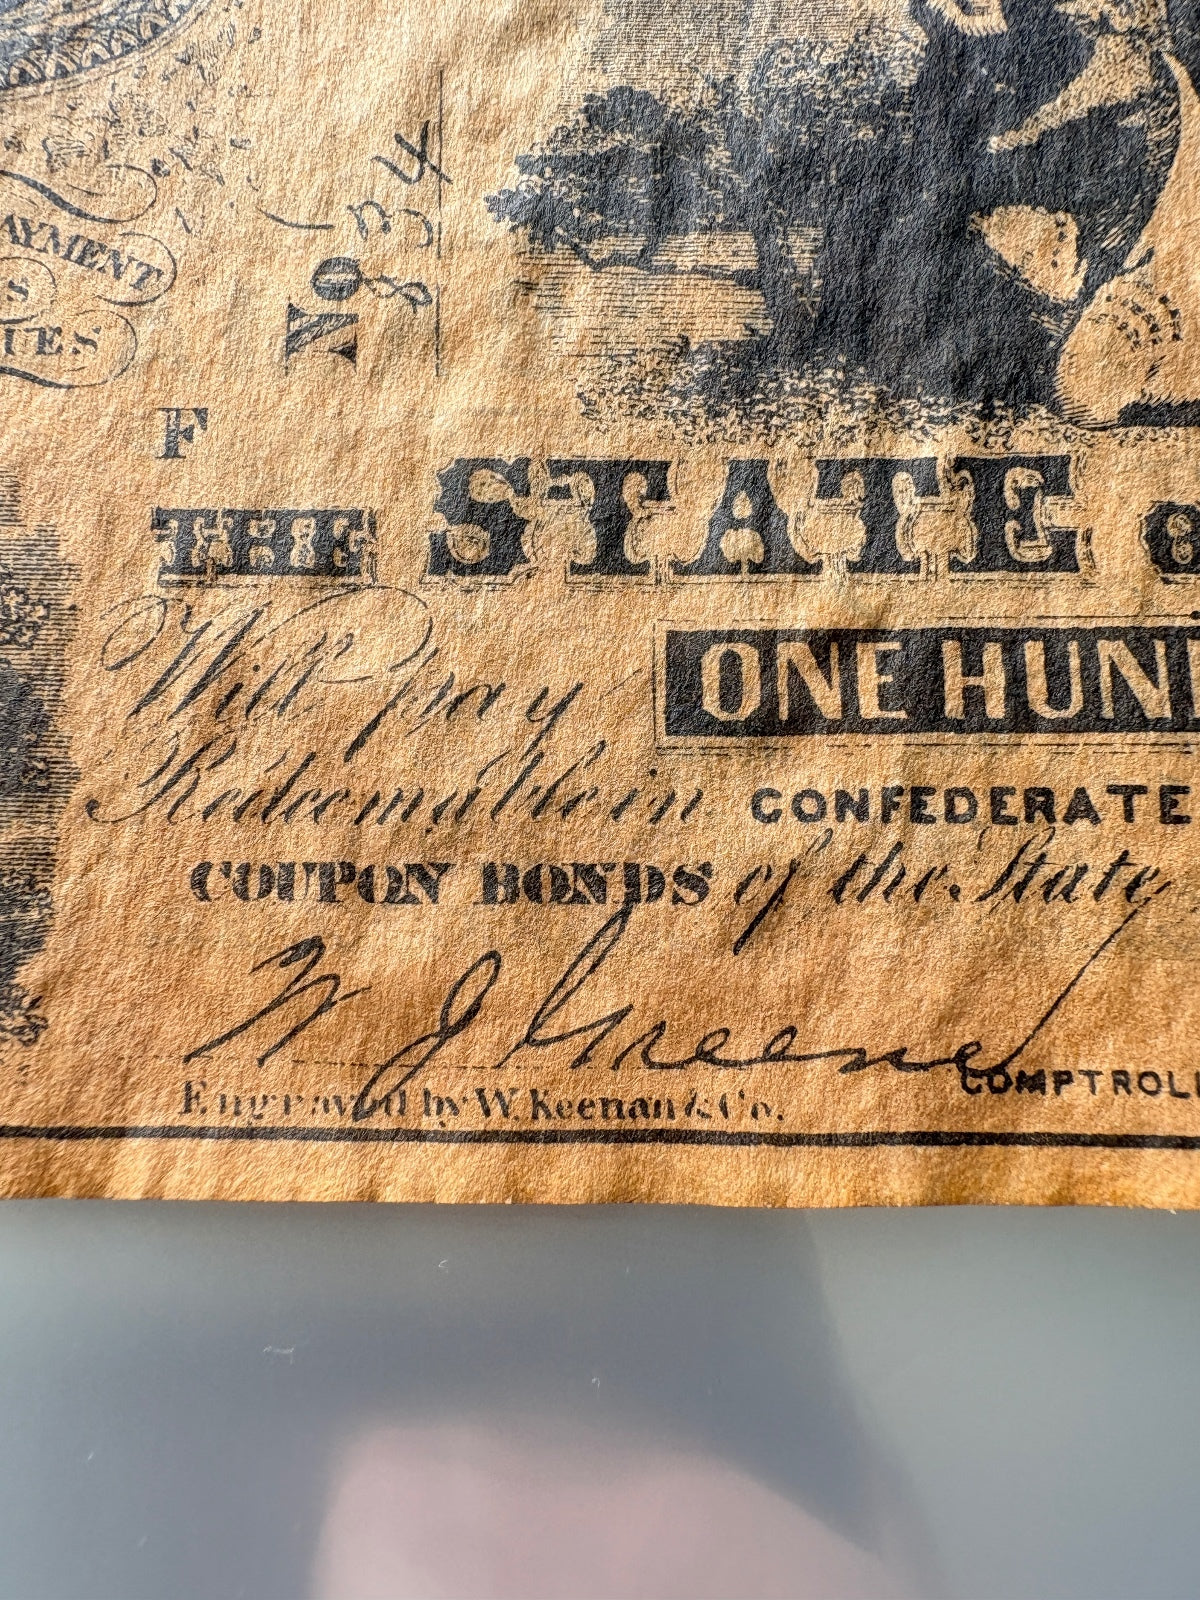 AYMENT
S
UES
No 834
F
THE STATE
Will pay ONE HUN
Redeemable in CONFEDERATE
COUPON BONDS of the State
W J Greene
COMPTROLL
Engraved by W. Keenan & Co.